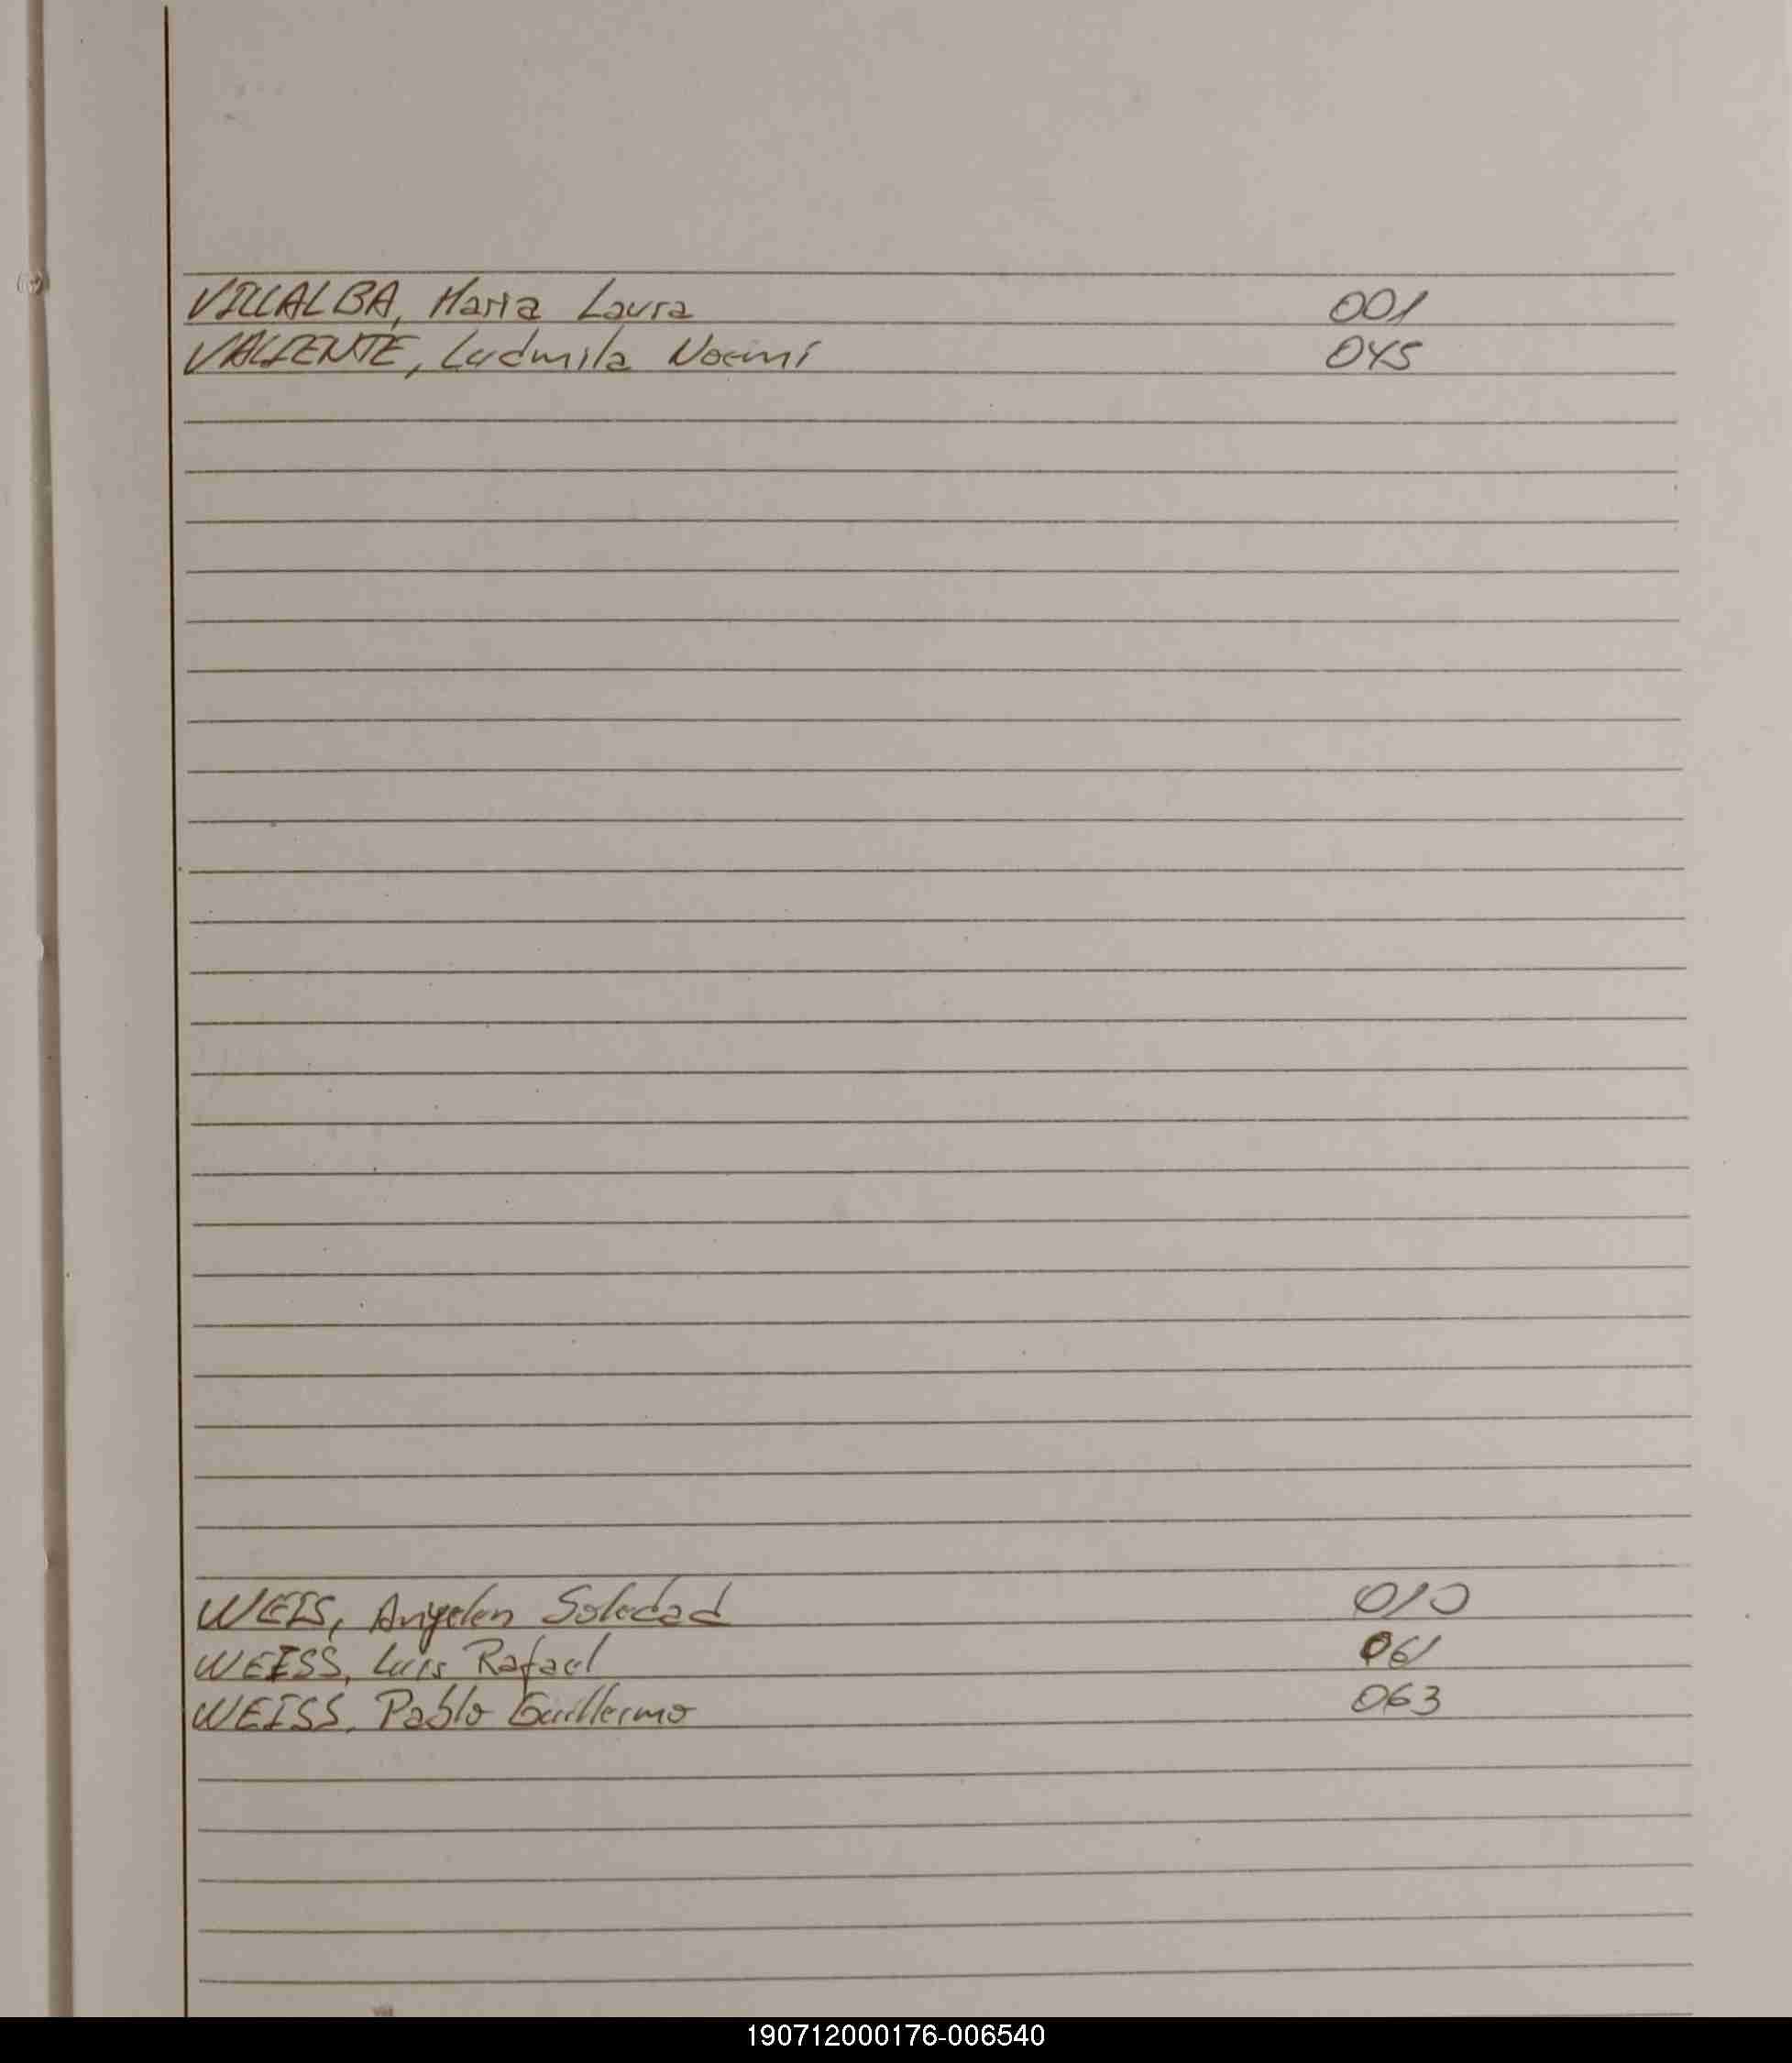 VILLALBA, Maria Laura 001
VALIENTE, Ludmila Noemí 045
WEIS, Angelen Soledad 010
WEISS, Luis Rafael 061
WEISS, Pablo Guillermo 063
190712000176-006540